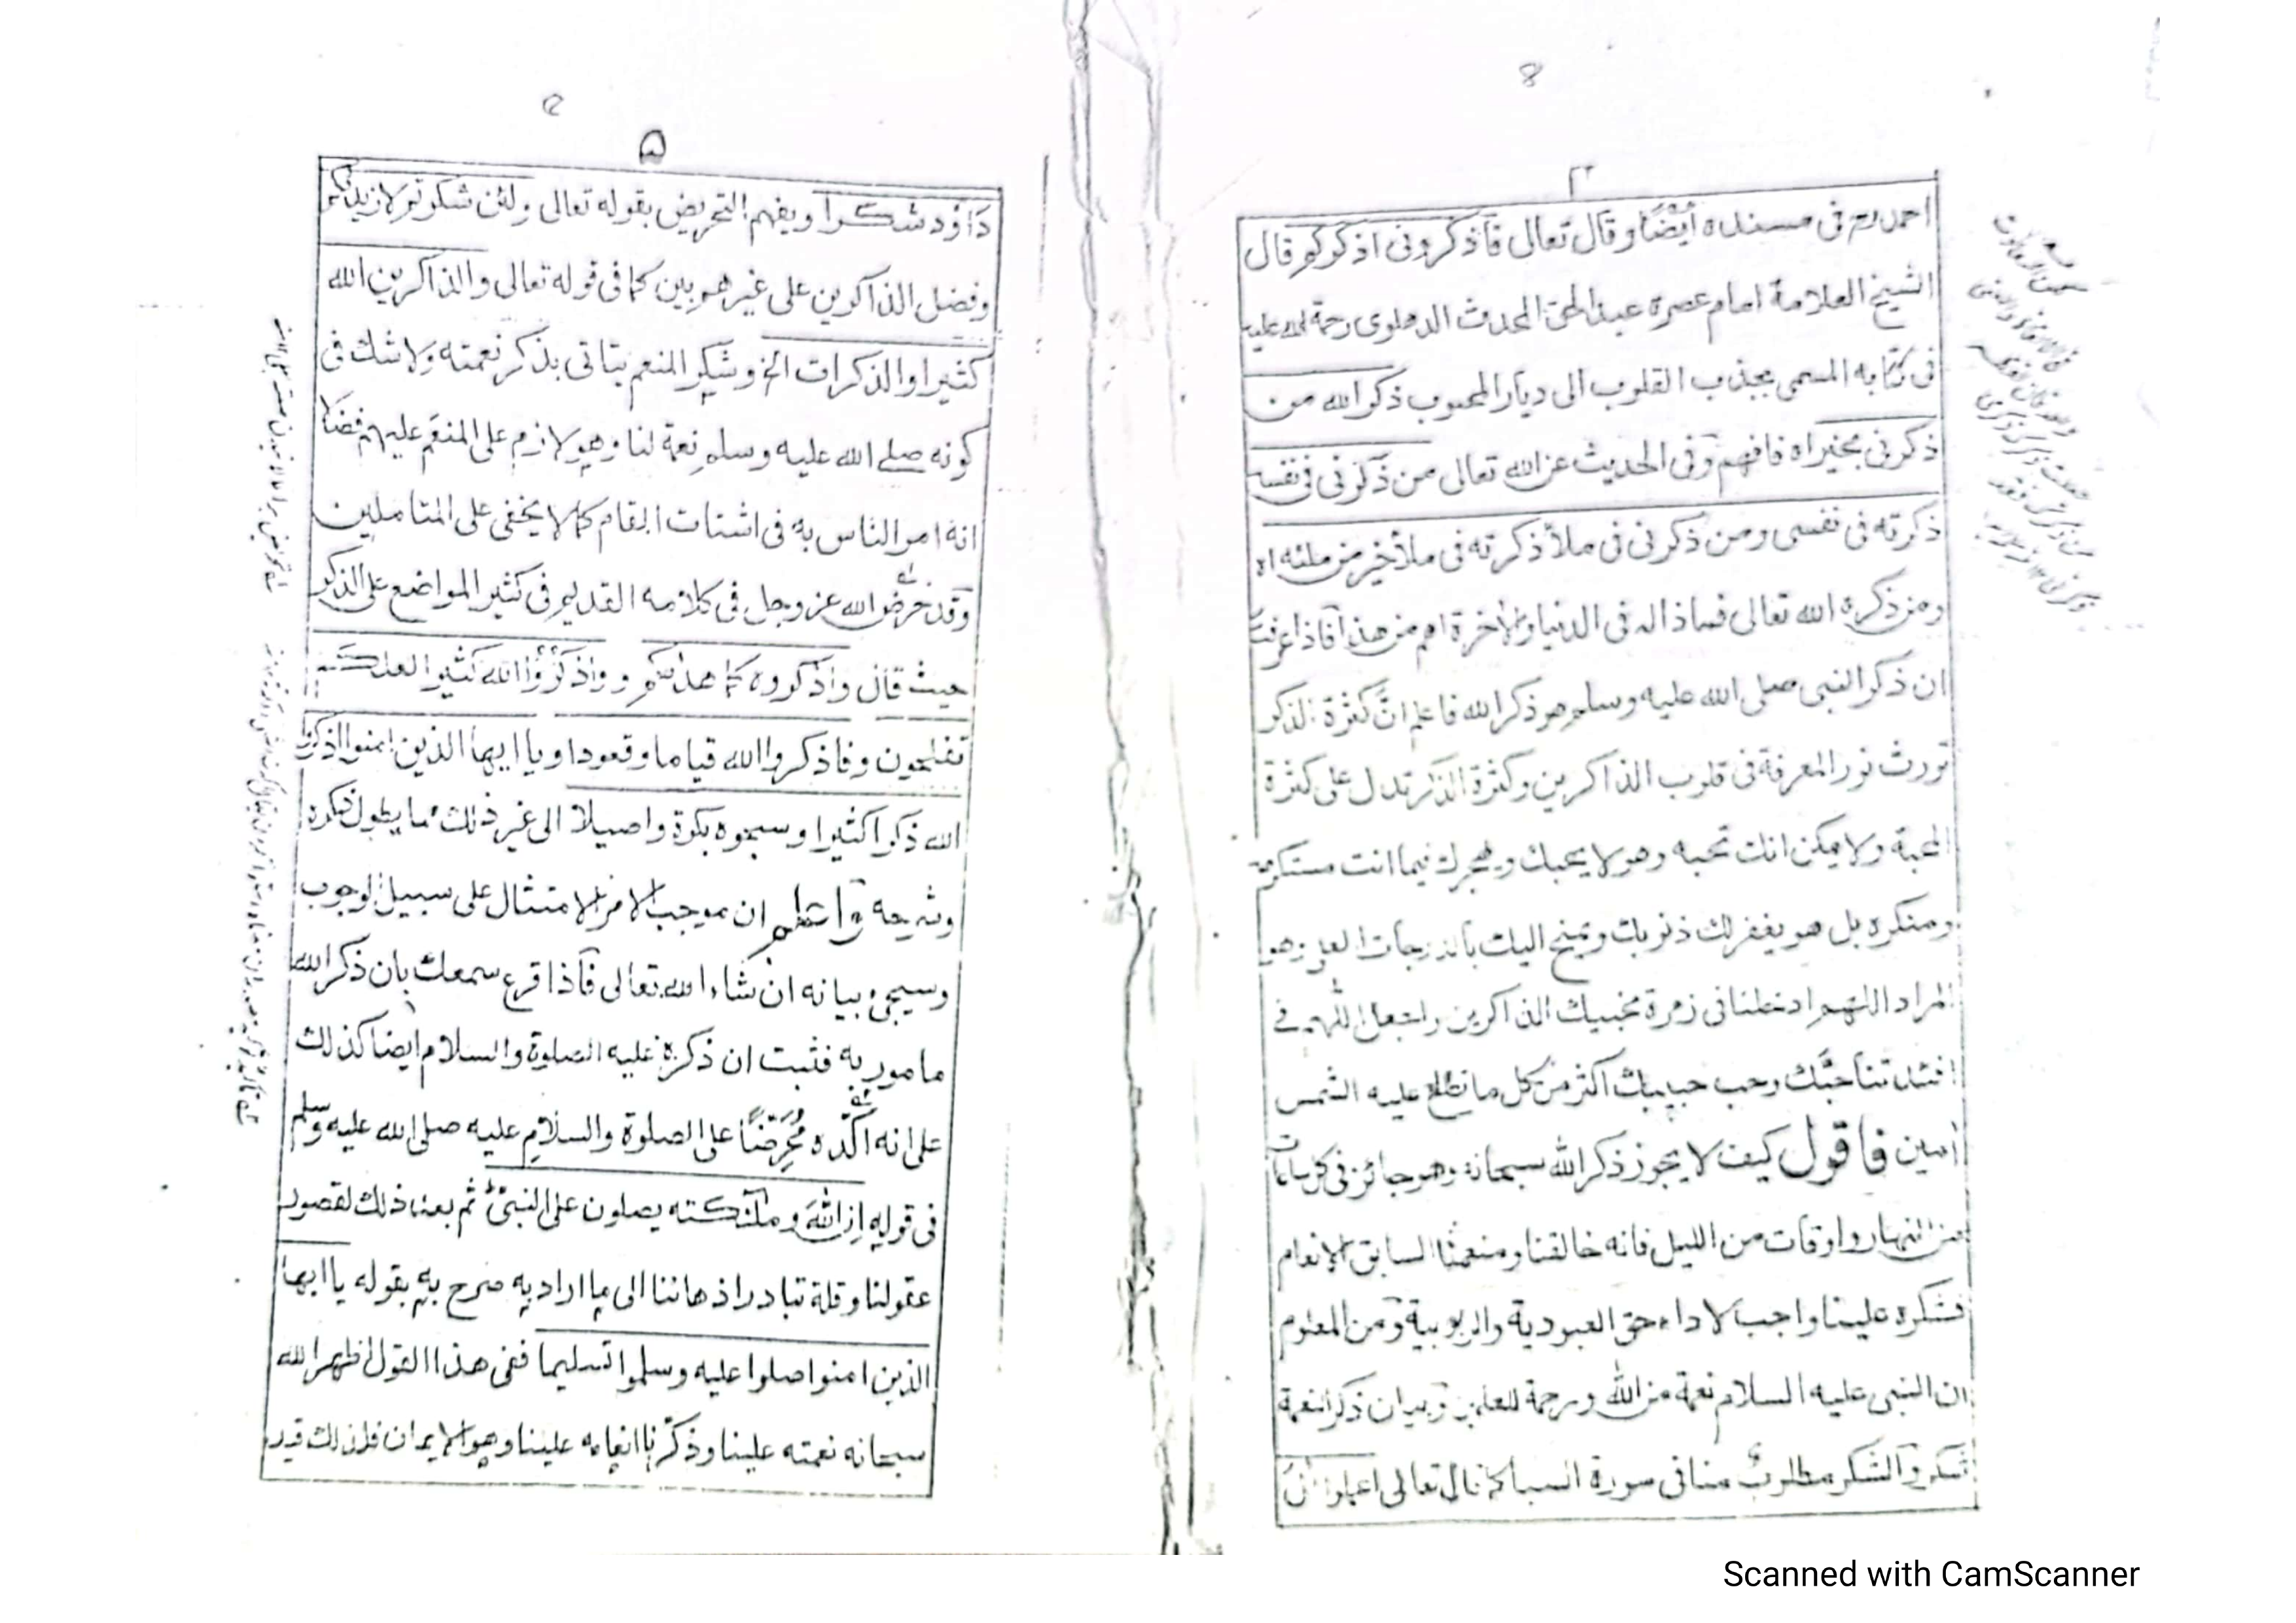 8
٤
احمد رح فى مسنده ايضًا وقال تعالى فاذكرونى اذكركم قال
الشيخ العلامة امام عصره عبد الحق المحدث الدهلوى رحمة الله عليه
فى كتابه المسمى بجذب القلوب الى ديار المحبوب ذكر الله من
ذكرنى بخير اه فافهم وفى الحديث عن الله تعالى من ذكرنى فى نفسه
ذكرته فى نفسى ومن ذكرنى فى ملأ ذكرته فى ملأ خير من ملئه اه
ومن ذكره الله تعالى فماذا له فى الدنيا والاخرة اهم من هذا فاذا عرفت
ان ذكر النبى صلى الله عليه وسلم هو ذكر الله فاعلم انّ كثرة الذكر
تورث نور المعرفة فى قلوب الذاكرين وكثرة الذكر تدل على كثرة
المحبة ولا يمكن انك تحبه وهو لا يحبك ويهجرك فيما انت مستكره
ومنكره بل هو يغفر لك ذنوبك ويمنح اليك بالدرجات العلى وهو
المراد اللهم ادخلنا فى زمرة محبيك الذاكرين واجعل اللهم فى
افئدتنا حبّك وحب حبيبك اكثر من كل ما تطلع عليه الشمس
امين فاقول كيف لا يجوز ذكر الله سبحانه وهو جائز فى كل ساعات
من النهار واوقات من الليل فانه خالقنا ومنعمنا السابق الانعام
فشكره علينا واجب لاداء حق العبودية والربوبية ومن المعلوم
ان النبى عليه السلام نعمة من الله ورحمة للعلمين وبيان ذكر النعمة
شكر والشكر مطلوب منا فى سورة السبا كما قال تعالى اعملوا ال
۵
۵
داؤد شكرا ويفهم التحريض بقوله تعالى ولئن شكرتم لازيدنكم
وفضل الذاكرين على غيرهم بين كما فى قوله تعالى والذاكرين الله
كثيرا والذكرات الخ وشكر المنعم يتاتى بذكر نعمته ولا شك فى
كونه صلے الله عليه وسلم نعمة لنا وهو لازم على المنعم عليهم فضلا
انه امر الناس به فى اشتات المقام كما لا يخفى على المتاملين
وقد حرض الله عز وجل فى كلامه القديم فى كثير المواضع على الذكر
حيث قال واذكروه كما هدىكم و واذكروا الله كثيرا لعلكم
تفلحون و فاذكروا الله قياما وقعودا و يا ايها الذين امنوا اذكروا
الله ذكرا كثيرا وسبحوه بكرة واصيلا الى غير ذلك مما يطول ذكره
وشرحه واعلم ان موجب الامر الامتثال على سبيل الوجوب
وسيجىء بيانه ان شاء الله تعالى فاذا قرع سمعك بان ذكر الله
مامور به فثبت ان ذكره عليه الصلوة والسلام ايضا كذلك
على انه اكّده مُحَرِّضًا على الصلوة والسلام عليه صلى الله عليه وسلم
فى قوله ان الله وملئكته يصلون على النبى ثم بعد ذلك لقصور
عقولنا وقلة تبادر اذهاننا الى ما اراد به صرح به بقوله يا ايها
الذين امنوا صلوا عليه وسلموا تسليما ففى هذا القول اظهر الله
سبحانه نعمته علينا وذكّرنا انعامه علينا وهو الايمان فلذلك قيد
Scanned with CamScanner